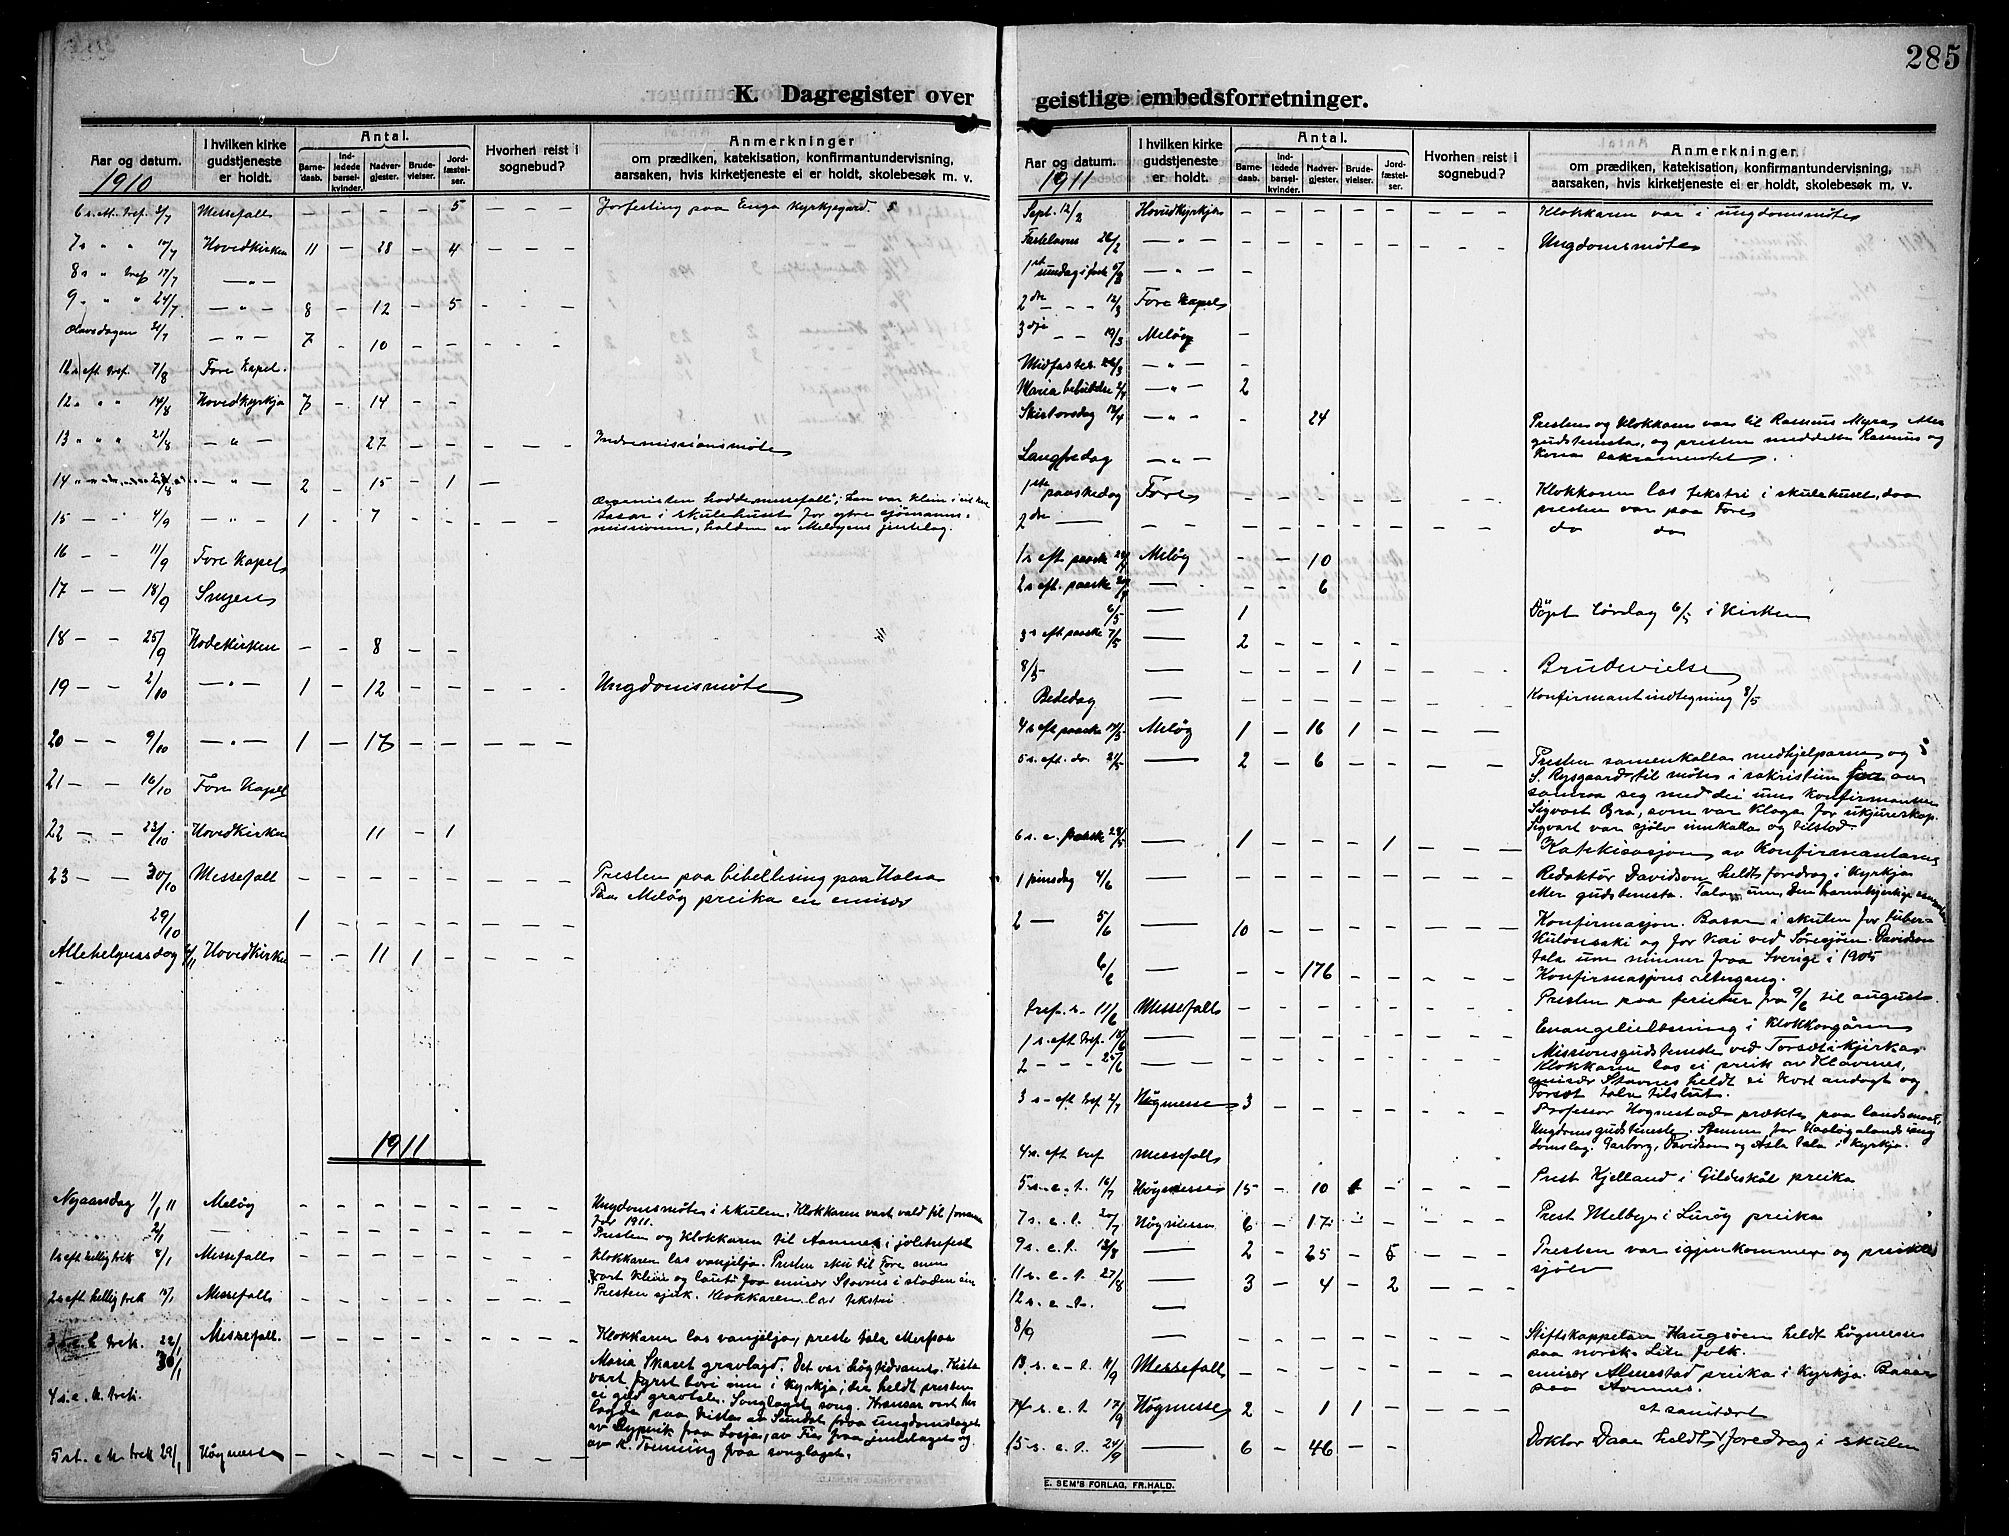 285
K. Dagregister over geistlige embedsforretninger.
Aar og datum.
1910
I hvilken kirke gudstjeneste er holdt.
Antal.
Barne-daab.
Ind-ledede barsel-kvinder.
Nadver-gjester.
Brude-vielser.
Jord-fæstel-ser.
Hvorhen reist i sognebud?
Anmerkninger
om prædiken, katekisation, konfirmantundervisning,
aarsaken, hvis kirketjeneste ei er holdt, skolebesøk m. v.
6 s. e. tref. 3/7 Messefall – – – – 5 Jorfesting paa Enga Kyrkjegard. 5
7 s " " 10/7 Hovedkirken 11 – 28 – 4
8 s " tref 17/7 – " –
9 " " " 24/7 – " – 8 – 12 – 5
Olavsdagen 29/7 – " – 7 – 10 – –
eft tref. 7/8 Fore Kapel.
12 " " " 14/8 Hovedkyrkja 7 – 14 – –
13 " " " 21/8 – " – 27 – – Indremissionsmøte
14 28/8 – " – 2 – 15 – 1 –
Organisten hadde messefall; han var klein i
basar i skulehuset for ytre sjømanns-
missionen, halden av Meløyens jentelag.
15 – – 4/9 – " – 1 – 7 – –
16 – – 11/9 Fore Kapel
17 – – 18/9
18 – – 25/9 Hovekirken – – 8 – –
19 – – 2/10 – " – 1 – 12 – – Ungdomsmøte
20 – – 9/10 – " – 1 – 17 – –
21 – – 16/10 Fore Kapel
22 – – 23/10 Hovedkirken 11 – 1
23 – – 30/10 Messefall Presten paa bibellesing paa Halsa
Paa Meløy preika en emisær
29/10 1 – – – –
Allehelgensdag 6/11 Hovedkirke – – 11 1 –
1911
Nyaarsdag 1/1 11 Meløy – – – – –
Ungdomsmøte i skulen. Klokkaren vart vald til formann
for 1911.
2/1 – Presten og Klokkaren til Aamnes i joletrefest
eft hellig trek 8/1 Messefall
Klokkaren las vanjelja. Presten sku til Fore men
vart klein og laut faa emisær Stavnes i staden sin
2 s eft hellig trek 15/1 Messefall Presten sjuk. Klokkaren las tekstri
trek. 22/1 Messefall. Klokkaren las vanjelja, preste tala
30/1
Maria Skaret gravlagd. Det var høgtidsamt. Kista
vart fyrst bori inn i kyrkja; der heldt presten
ei god gravtale. Songlaget song. Kransar vart
lagde paa kista av Sundal fraa ungdomslaget
av fraa av fraa jentelaget og
av K. Tønning fraa songlaget.
4 s. e. h. trek.
5 st. e h. trek 29/1 Høgmesse – – – – –
Aar og datum.
1911
I hvilken kirke gudstjeneste er holdt.
Antal.
Barne-daab.
Ind-ledede barsel-kvinder.
Nadver-gjester.
Brude-vielser.
Jord-fæstel-ser.
Hvorhen reist i sognebud?
Anmerkninger.
om prædiken, katekisation, konfirmantundervisning,
aarsaken, hvis kirketjeneste ei er holdt, skolebesøk m. v.
Sept. 12/2 Hovudkyrkja – – – – – Klokkaren var i ungdomsmøte
Fastelavns 26/2 – " – – – – – – Ungdomsmøte
1st sundag i faste 5/3 – " – –
2dre – – 12/3 Fore Kapel –
3dje – – 19/3 Meløy –
Midfaste 26/3 – " – –
Maria bebudelse 2/4 – " – 2
Skirtorsdag 13/4 – " – 24
Presten og Klokkaren var til Rasmus Myra,
gudstenesta, og presten meddelte Rasmus og
kona sakramentet.
Langfredag – " –
1ste paaskedag Fore – – – – –
Klokkaren las tekstri i skulehuset, daa
presten var paa Fore
2dre – – – – – – – do do
1 s eft. paaske 23/4 Meløy – – 10
2 s eft. paaske 30/4 – – – 6
6/5 – 1 Döpt Lördag 6/5 i Kirken
3 s eft paaske 7/5 – 2 – – – –
8/5 – – – – 1 – Brudevielse
Bededag – Konfirmantindtegning 8/5
4 s eft paaske 14/5 Meløy 1 – 16 1 –
5 s. eft. do. 21/5 – 2 – 6 – –
Presten samenkalla medhjelparne og
S. Rysgaard til møte i sakristien for aa
samraa seg med dei um konfirmanten
Sigvart Øra, som var klaga for ukjurskap.
Sigvart var sjølv innkalla og tilstod.
6 s. e. paaske 28/5 – 1 – – – 1 Katekisasjon av Konfirmantarne
1 pinsdag 4/6 – – – – – –
Redaktør Davidson heldt foredrag i Kyrkja
etter gudstenesta. Tala um: Den barmhjertige
2 – 5/6 – 10 – – – –
Konfirmasjon. Basar i skulen for tuber-
kulosesaki og for kai ved Søresjøen. Davidson
tala um minner fraa Sverige i 1905
6/6 – – – 176 – – Konfirmasjons altergang.
Tref. s. 11/6 Messefall – – – – – Presten paa ferietur fra 9/6 til august.
1 s. eft tref. 18/6 – – – – – – Evangelielæsning i Klokkargåren
2 – – – 25/6 – – – – – –
Missionsgudsteneste ved Torset i kjerka.
Klokkaren las ei preik av Klavnes,
emisær Stavnes heldt ei kort andagt og
Torset tala tilslut.
3 s – eft tref 2/7 Høgmesse 3 – – – –
Professor Hognestad præktes paa landsmaal,
Ungdomsgudsteneste. Stemne for Haalogalands ung
domslag. Garborg, Davidson og Asla tala i kyrkja.
4 s. eft tref Messefall
5 s. e. t. 16/7 Høgmesse 15 – 10 1 – Prest Kjelland i Gildeskål preika
7 s. e. t. 30/7 Høgmesse 6 – 17 – – Prest Melbye i Lurøy preika
9 s. e. t. 13/8 – 2 – 25 – 5
Presten var igjenkommen og preika
sjølv
11 s. e. t. 27/8 – 3 – 4 – 2
12 s. e. t. –
8/9 – – – – – –
Stiftskappelan Haugsøen heldt høgmesse
paa norsk. Lite folk.
13 s. e – t. 11/9 Messefall – – – – –
emisær Almestad preika i Kyrkja. Basar
paa Aamnes.
14 s. e. t. 17/9 Høgmesse 2 – 1 1 –
et sanitært
15 s. e. t. 24/9 – 6 – 46 – – Doktor Daae heldt foredrag i skulen
E. SEM'S FORLAG, FR.HALD.